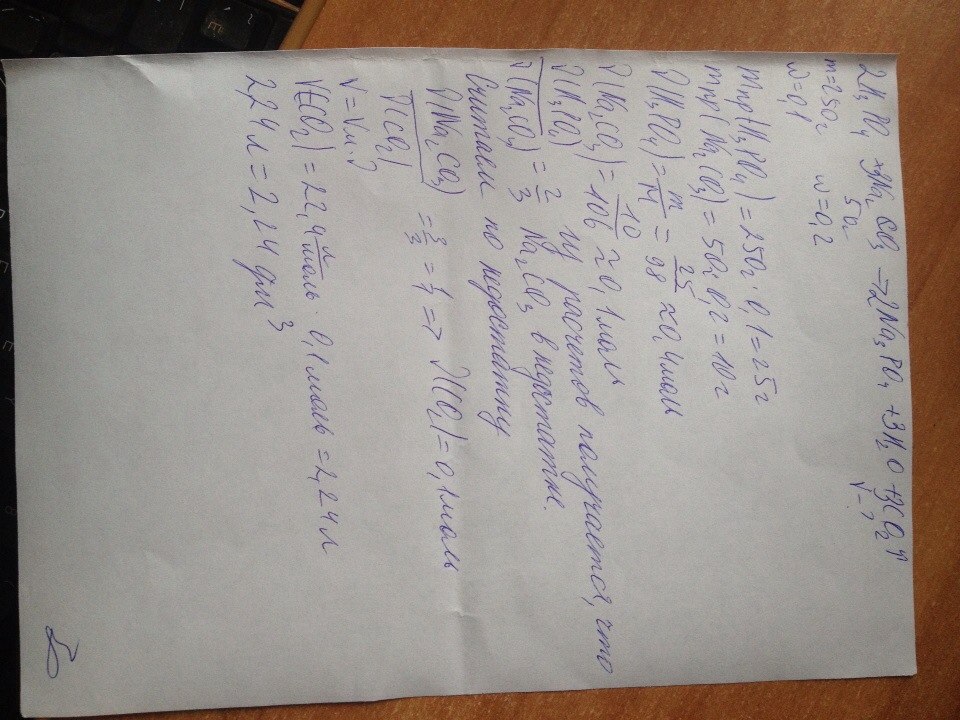 2H₃PO₄ + 3Na₂CO₃ → 2Na₃PO₄ + 3H₂O + 3CO₂↑
m=250г 50г V-?
ω=0,1 ω=0,2
mнр(H₃PO₄)=250г·0,1=25г
mнр(Na₂CO₃)=50г·0,2=10г
ν(H₃PO₄)=m/M=25/98≈0,4моль
ν(Na₂CO₃)=10/106≈0,1моль
ν(H₃PO₄)/ν(Na₂CO₃)=2/3 из расчетов получается, что
Na₂CO₃ в недостатке.
Считаем по недостатку
ν(Na₂CO₃)/ν(CO₂)=3/3=1/1=>ν(CO₂)=0,1моль
V=Vм·ν
V(CO₂)=22,4л/моль·0,1моль=2,24л
2,24л=2,24дм³